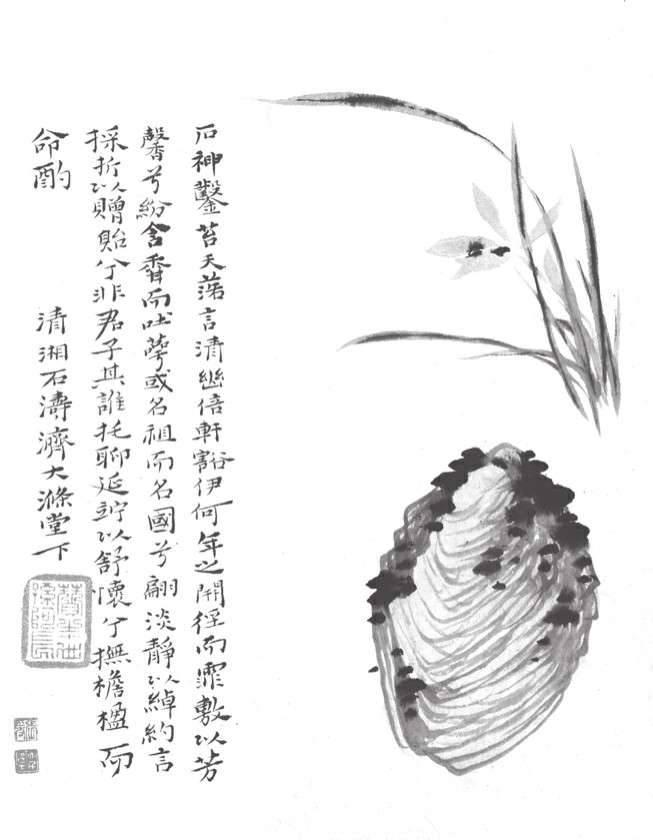 石神鑿苔天落言清幽倍軒豁伊何年之開徑而霏敷以芳
馨兮紛含香而吐蕚或名祖而名國兮翩淡靜以綽約言
採折以贈貽兮非君子其誰托聊延竚以舒懷兮撫檐楹而
命酌
清湘石濤濟大滌堂下